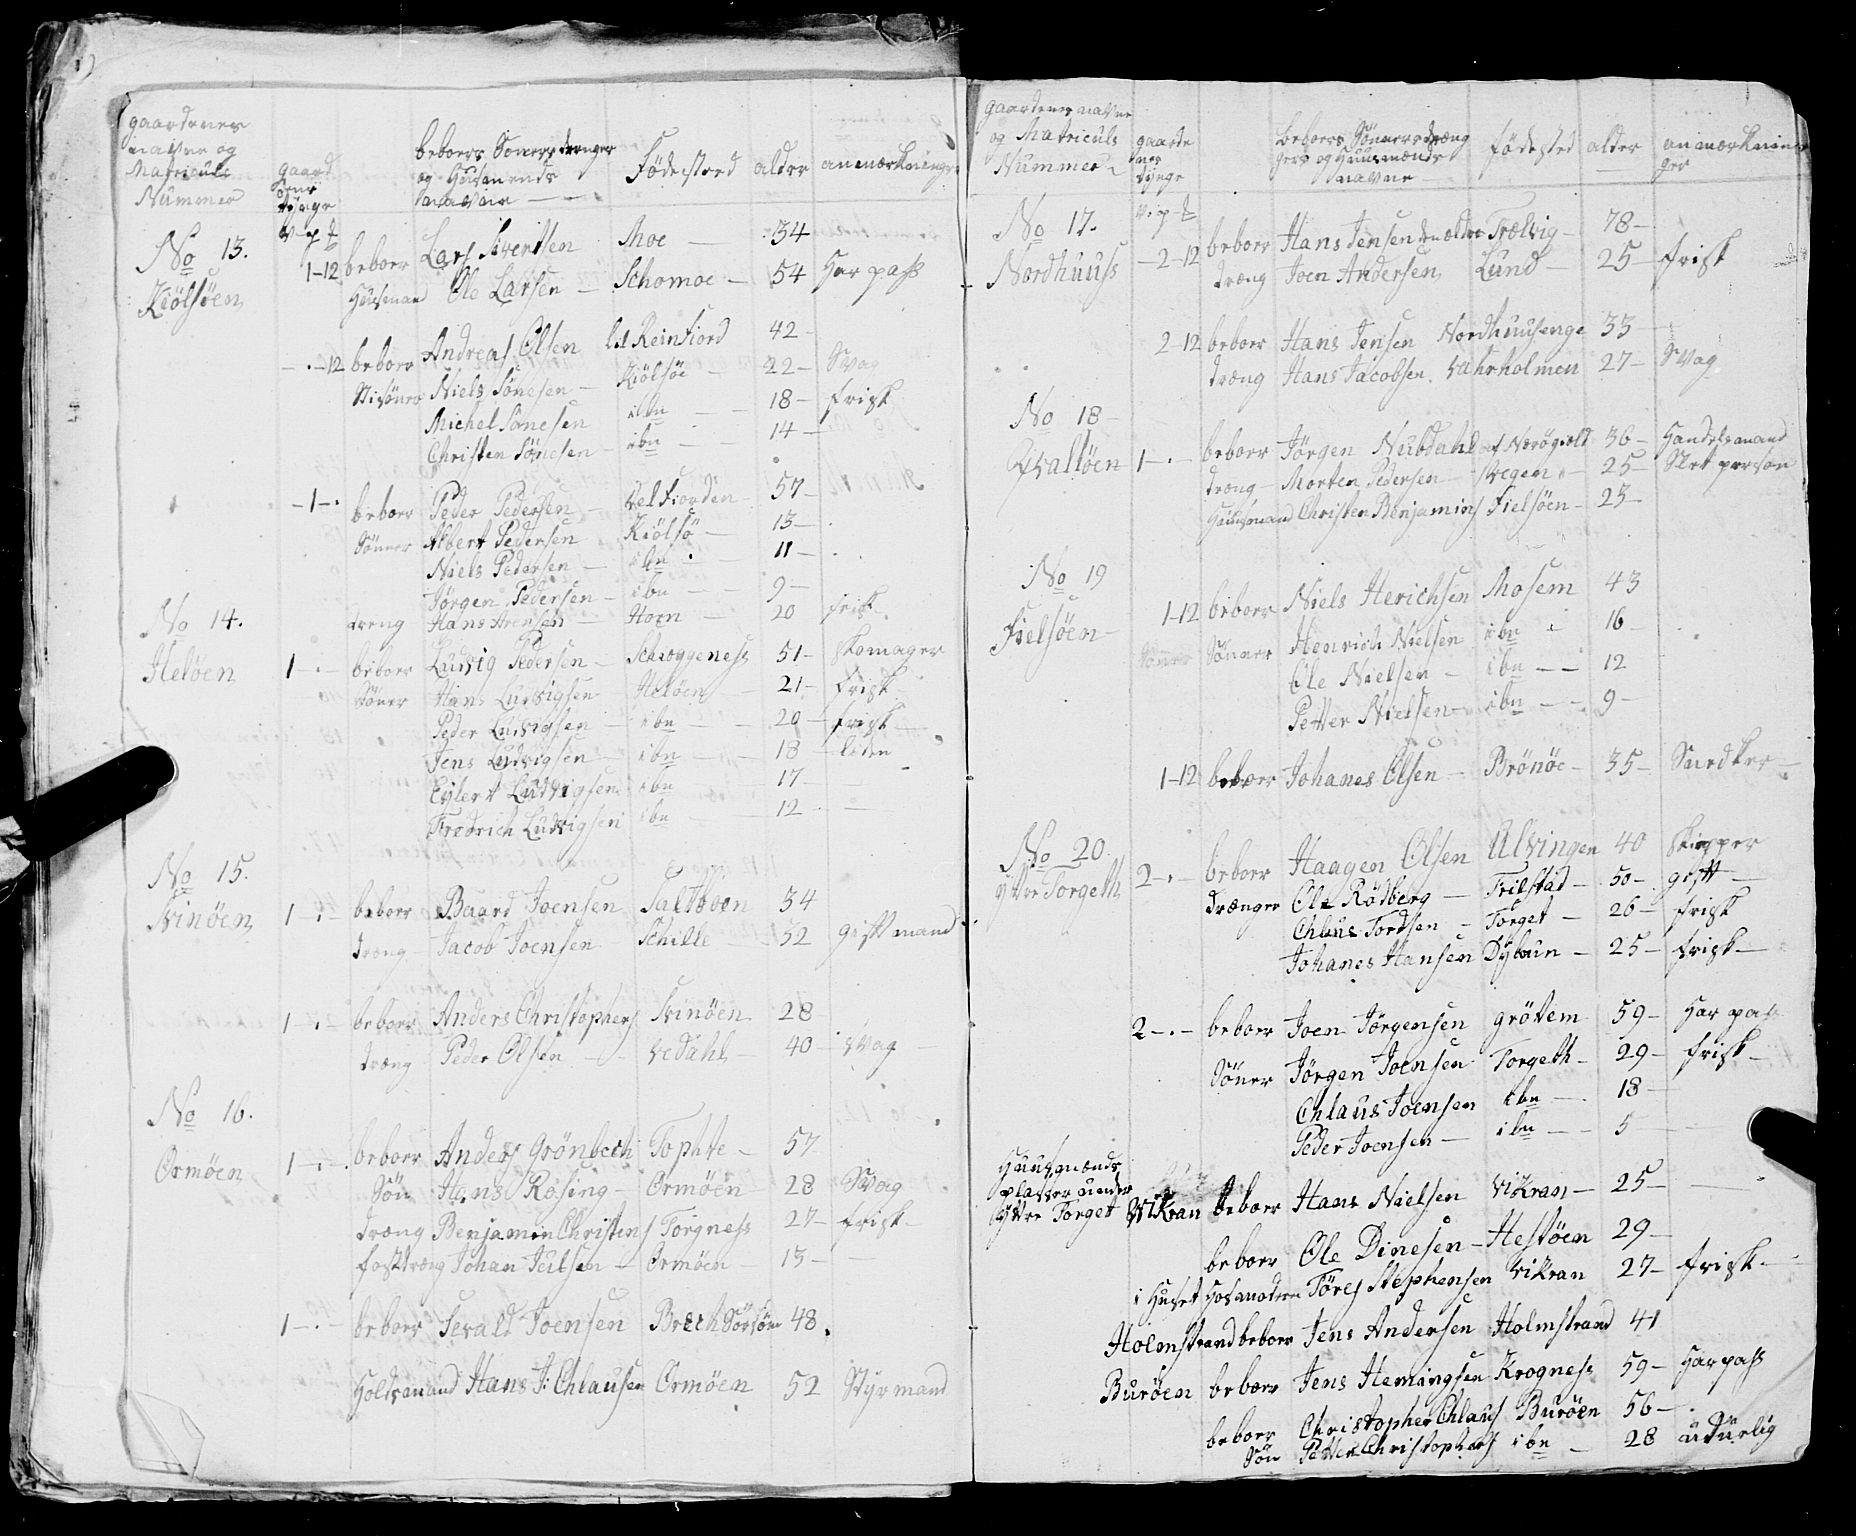 gaardenes navne og Matriculs Nummer
gaardens tynge
V - p - #
beboers Söners drenger og Husmends navne
Födestæd
alder
anmærkninger
No 13. Kiölsöen
1-12 beboer Lars Sivertsen Moe 34
Huusmand Ole Larsen Schomoe 54 Har pass
- . -12 beboer Andreas Olsen Reinfiord 42
Stisöner Niels Sönesen Kiölsöe 22 Svag
Michel Sönesen ibn 18 frisk
Christen Sönesen ibn 14
-1- . beboer Peder Pedersen Velfiorden 57
Sönner Albert Pedersen Kiölsö 13
Niels Pedersen ibn 11
Jörgen Pedersen ibn 9
dreng Hans Arensen Hoen 20 frisk
No 14. Heløen
1 - . - beboer Ludvig Pedersen Schroggenes 51 Skomager
Söner Hans Ludvigsen Heløen 21 frisk
Peder Ludvigsen ibn 20 frisk
Jens Ludvigsen ibn 18 liden
Eylert Ludvigsen ibn 17
Fredrich Ludvigsen ibn 12
No 15. Svinöen
1 - . - beboer Baard Joensen 34
dræng Jacob Joensen Schille 32 gift mand
1 - . - beboer Anders Christophers Svinöen 28
dræng Peder Olsen Vedahl 40 Svag
No 16. Ormöen
1 - . - beboer Anders Grönbech Tophte 57
Sön Hans Rosing Ormöen 28 Svag
dræng Benjamin Christens Torgness 27 frisk
fostdræng Johan Jeilsen Ormöen 13
1 - . - beboer Sevald Joensen Brech Sörsöm 48
Holdsmand Hans J: Chlausen Ormöen 52 Styrmand
gaardenes navne og Matriculs Nummer
gaardenes tynge
V - p - #
beboers Sönners drængers og Huusmænds navne
födested
alder
anmærkninger
No 17. Nordhuuss
2-12 beboer Hans Jensen den ældre Trælvig 78
dræng Joen Andersen Lund 25 frisk
2-12 beboer Hans Jensen Nordhuusenge 33
dræng Hans Jacobsen Vahrholmen 27 Svag
No 18 Qvalöen
1 - . - beboer Jörgen Nubdahl af Nærögvold 36 Handelsmand
dræng Morten Pedersen Vegen 25 Slet person
Huusmand Christen Benjamins Fielsöen 23
No 19 Fielsöen
1-12 beboer Niels Herichsen Mosem 43
Sönner Sönner Henrich Nielsen ibn 16
Ole Nielsen ibn 12
Petter Nielsen ibn 9
1-12 beboer Johanes Olsen Brönöe 35 Snedker
No 20. yttre Torgeth
2 - . - beboer Haagen Olsen Ulvingen 40 Skipper
drænger Ole Rödberg Trilstad 50 gift
Chlaus Tordsen Torget 26 frisk
Johanes Hansen Dybaun 25 frisk
2 - . - beboer Joen Jörgensen Grötem 59 Har pas
Söner Jörgen Joensen Torgeth 29 frisk
Chlaus Joensen ibn 18
Peder Joensen ibn 5
Huusmænds platser under
yttre Torget Vikran beboer Hans Nielsen Vikran 25
beboer Ole Dinesen Hestöen 29
i Huset Hos moderen Töres Stephensen Vikran 27 frisk
Holmstrand beboer Jens Andersen Holmstrand 41
Buröen beboer Jens Hemingsen Krogness 59 Har pass
beboer Christopher Chlaus Buröen 56
Sön Petter Christophers ibn 28 udürlig